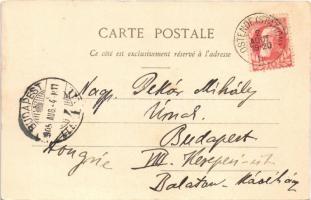 CARTE POSTALE
Ce côté est exclusivement réservé à l'adresse
OSTENDE
BUDAPEST
905 AUG
Nagy. Pekár Mihály
Úrnak
Budapest
Hongrie VIII. Kerepesi-út
Balaton Kávéház